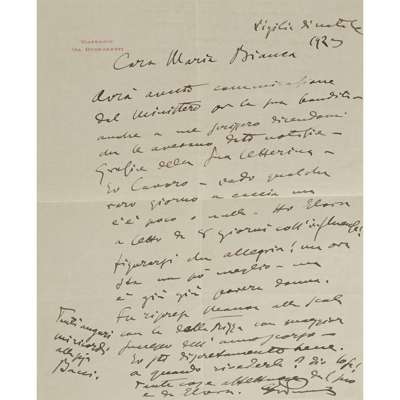 VIAREGGIO
VIA BUONARROTI
Vigilia di natale
1923
Cara Maria Bianca
Avrà avuto comunicazione
del Ministero per la sua
anche a me scrissero dicendomi
che le avevano dato notizia –
Grazie della Sua letterina –
Io lavoro – vado qualche
raro giorno a caccia ma
c'è poco o nulla – Ho Elvira
a letto da 8 giorni coll'influenza!
figurarsi che allegria! ora
sta un pò meglio – ma
è giù giù povera donna.
Fu ripresa Manon alla Scala
con la dalla Rizza con maggior
successo dell'anno scorso –
Io sto discretamente bene.
a quando rivederla?
Tante cose affettuose dal suo
e da Elvira.
Tanti auguri
mi ricordi
alla
Bacci.